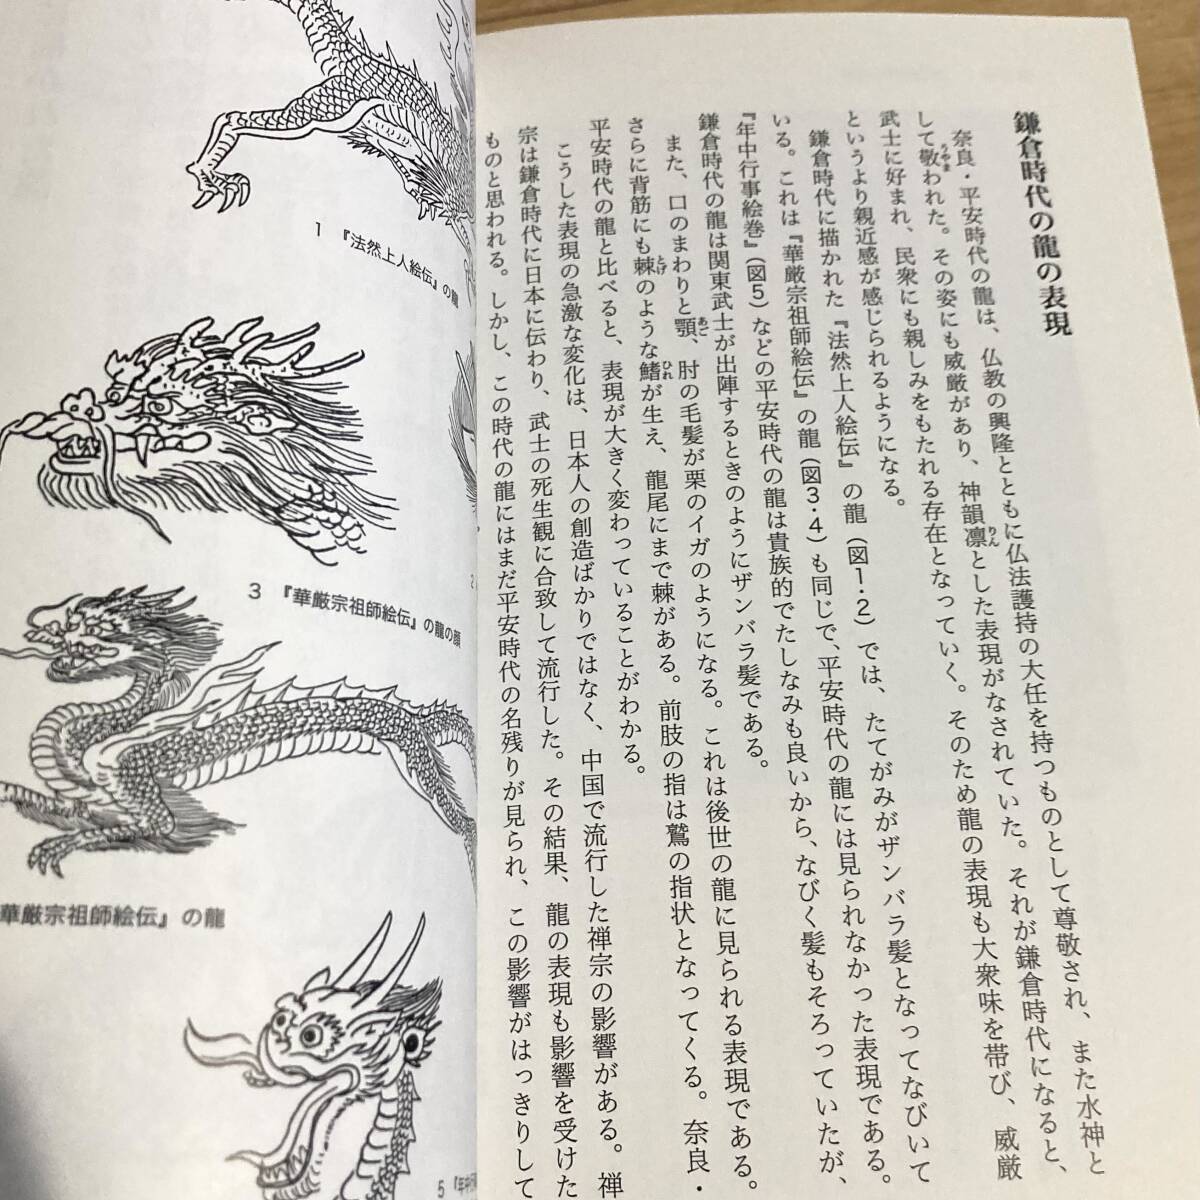 鎌倉時代の龍の表現
奈良・平安時代の龍は、仏教の興隆とともに仏法護持の大任を持つものとして尊敬され、また水神と
して敬われた。その姿にも威厳があり、神韻凛とした表現がなされていた。それが鎌倉時代になると、
武士に好まれ、民衆にも親しみをもたれる存在となっていく。そのため龍の表現も大衆味を帯び、威厳
というより親近感が感じられるようになる。
鎌倉時代に描かれた『法然上人絵伝』の龍（図1・2）では、たてがみがザンバラ髪となってなびいて
いる。これは『華厳宗祖師絵伝』の龍（図3・4）も同じで、平安時代の龍には見られなかった表現である。
『年中行事絵巻』（図5）などの平安時代の龍は貴族的でたしなみも良いから、なびく髪もそろっていたが、
鎌倉時代の龍は関東武士が出陣するときのようにザンバラ髪である。
また、口のまわりと顎、肘の毛髪が栗のイガのようになる。これは後世の龍に見られる表現である。
さらに背筋にも棘のような鰭が生え、龍尾にまで棘がある。前肢の指は鷲の指状となってくる。奈良・
平安時代の龍と比べると、表現が大きく変わっていることがわかる。
こうした表現の急激な変化は、日本人の創造ばかりではなく、中国で流行した禅宗の影響がある。禅
宗は鎌倉時代に日本に伝わり、武士の死生観に合致して流行した。その結果、龍の表現も影響を受けた
ものと思われる。しかし、この時代の龍にはまだ平安時代の名残りが見られ、この影響がはっきりして
1 『法然上人絵伝』の龍
2
3 『華厳宗祖師絵伝』の龍の顔
華厳宗祖師絵伝』の龍
5 『年中行